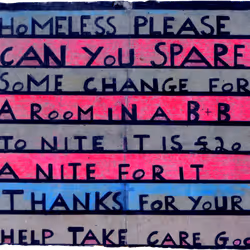 HOMELESS PLEASE
CAN YOU SPARE
SOME CHANGE FOR
A ROOM IN A B+B
TO NITE IT IS £20
A NITE FOR IT
THANKS FOR YOUR
HELP TAKE CARE